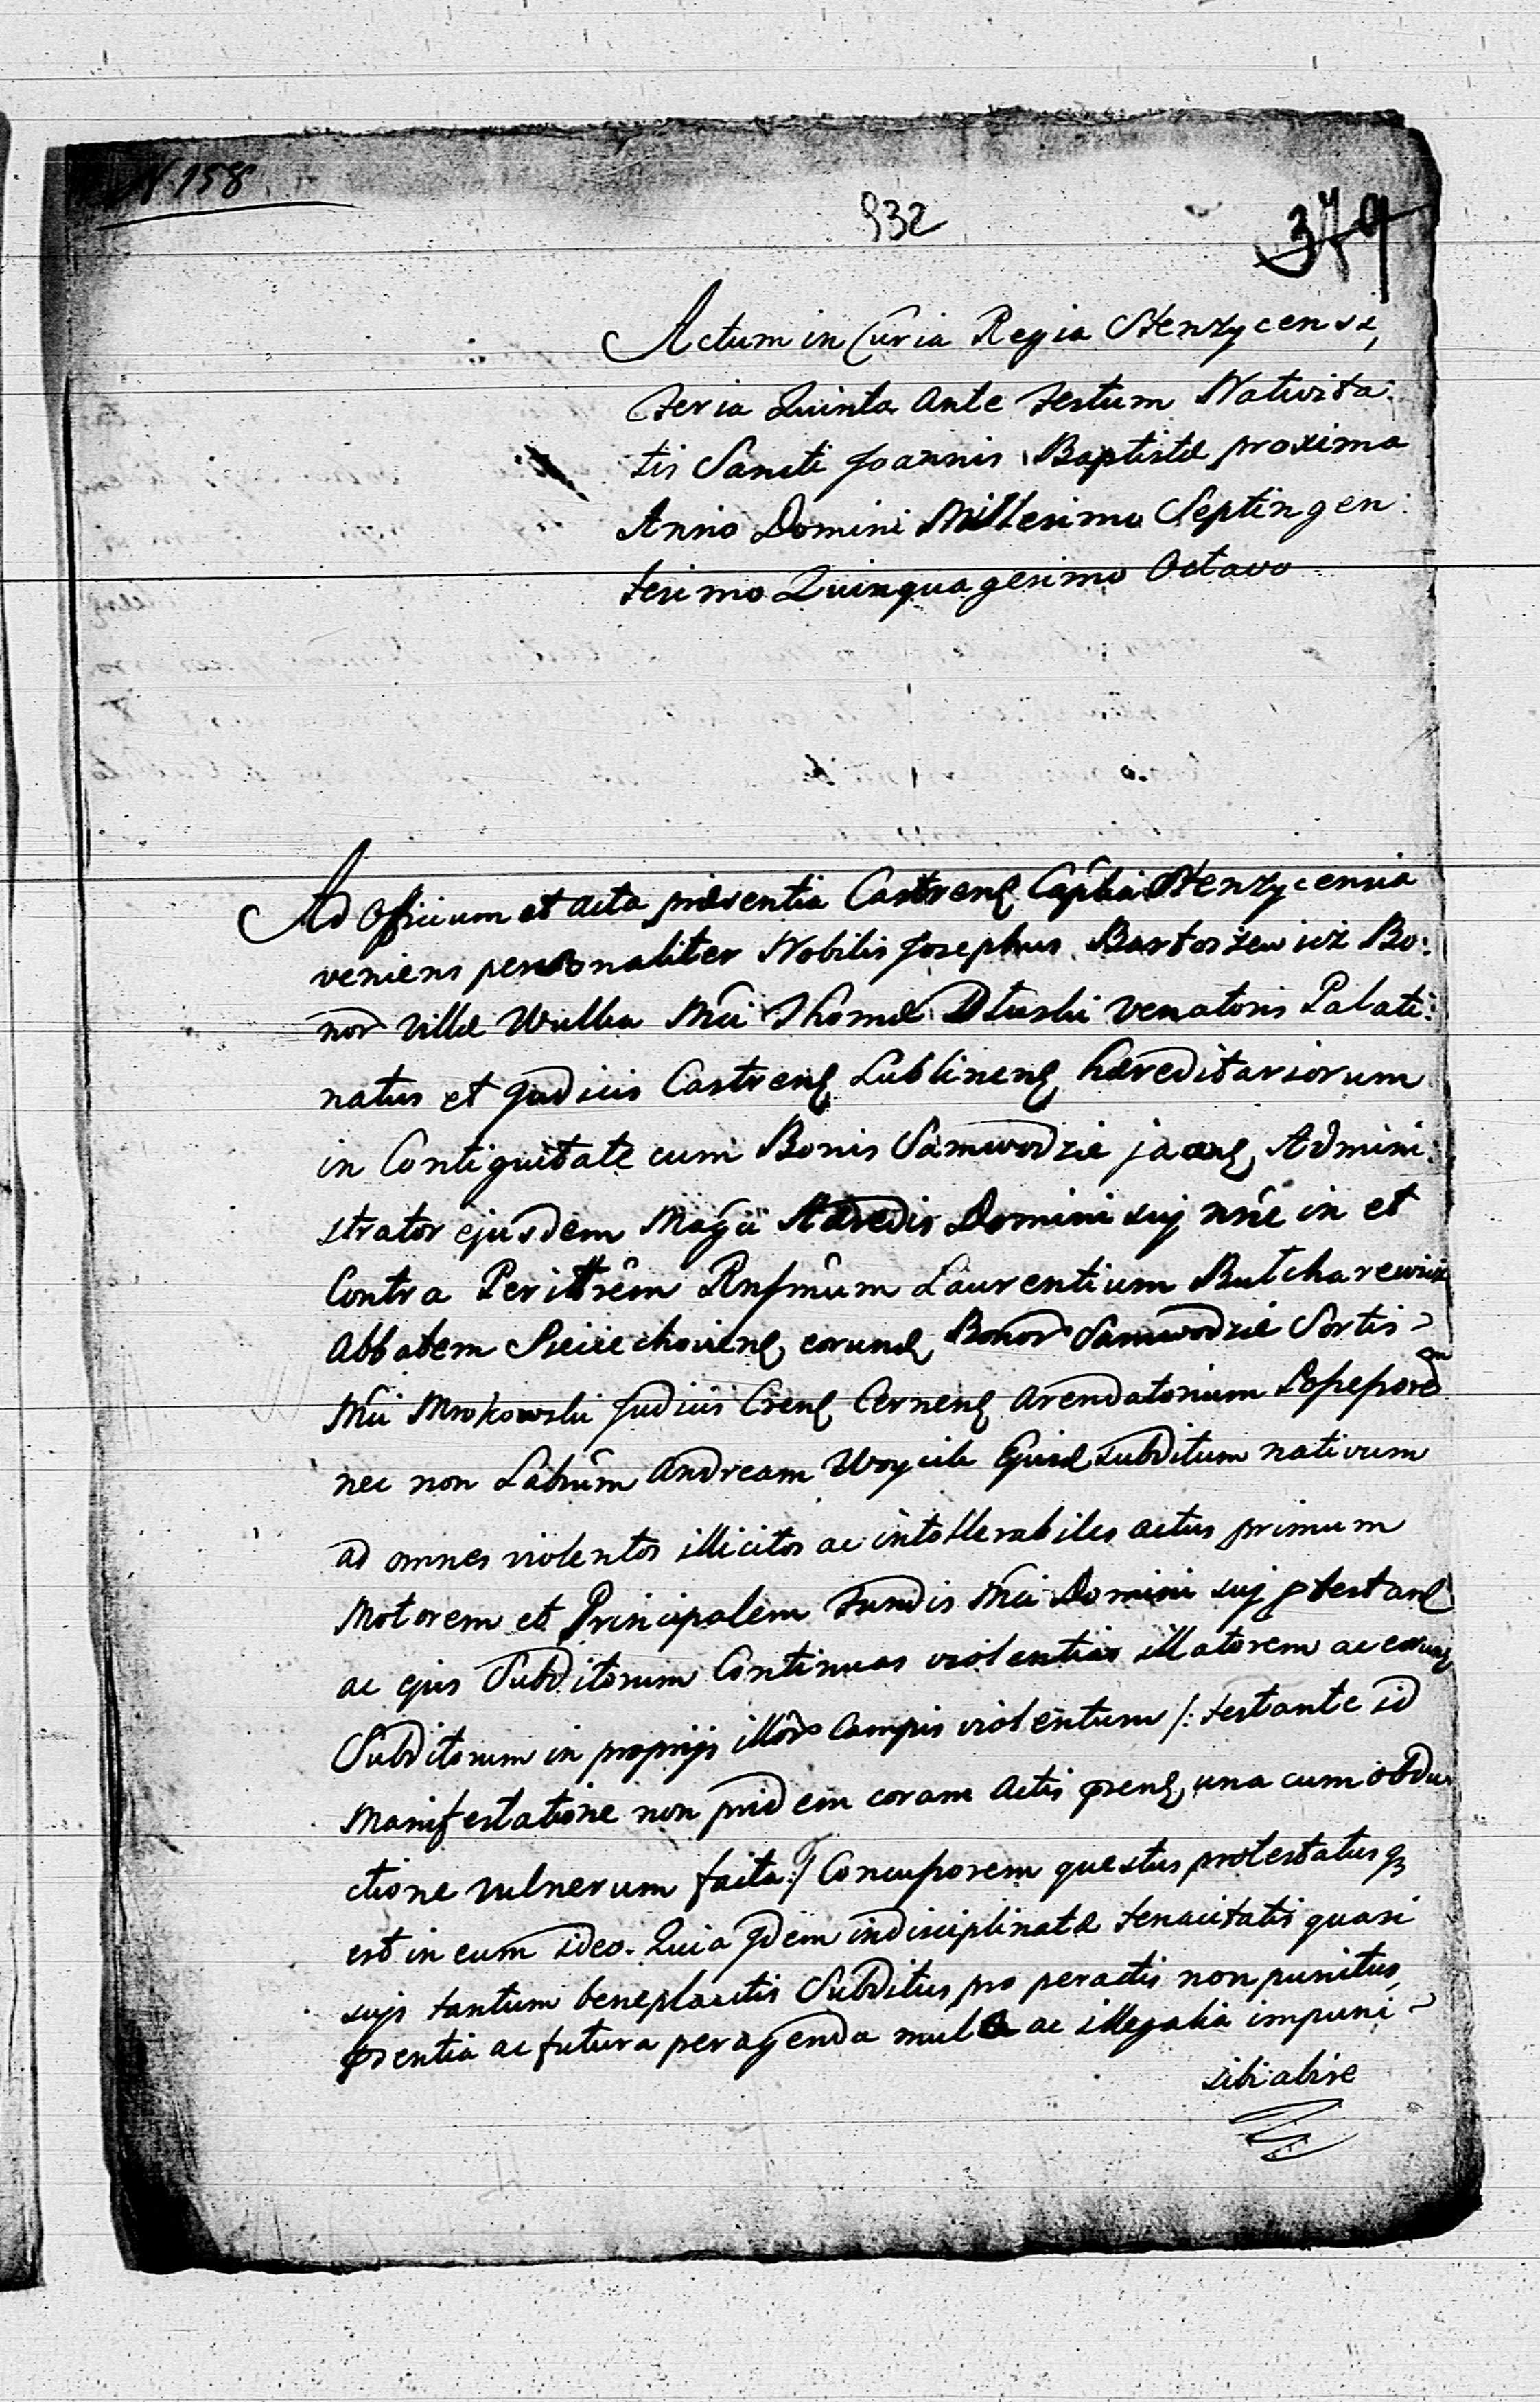 N. 158
932
379
Actum in Curia Regia Stenzycensi,
Feria Quinta Ante Festum Nativita:
tis Sancti Joannis Baptistæ proxima
Anno Domini Millesimo Septingen:
tesimo Quinquagesimo Octavo
Ad Officium et Acta præsentia Castren Capitlia Stenzycensia
veniens personaliter Nobilis Josephus Bartoszewicz Bo:
nor Villæ Wulka Mci Thomæ Dłuski Venatoris Palati:
natus et Judicis Castren Lublinen hæreditariorum
in Contiguitate cum Bonis Samwodzie jacen Admini:
strator ejusdem Magci Hæredis Domini suj nne in et
Contra Perillrem Rnfmum Laurentium Butcharewicz
Abbatem Sieciechovien eorund Bonor Samwodzie Sortis
Mci Mrokowski Judicis Cren Cernen Arendatorium Popeporem
nec non Labrum Andream Woycik Ejusd subditum nativum
ad omnes violentos illicitos ac intollerabiles actus primum
Motorem et Principalem Fundis Mci Domini suj ptestan
ac ejus Subditorum Continuas violentias illatorem ac eorund
Subditorum in proprijs illor Campis violentum /: testante id
Manifestatione non pridem coram Actis pren una cum obdu
ctione vulnerum facta :/ Concussorem questus protestatusq
est in eum ideo. Quia Idem indisciplinatæ tenacitatis quasi
sujs tantum beneplacitis Subditus pro peractis non punitus,
præntia ac futura peragenda mula ac illegalia impuni
sibi abire